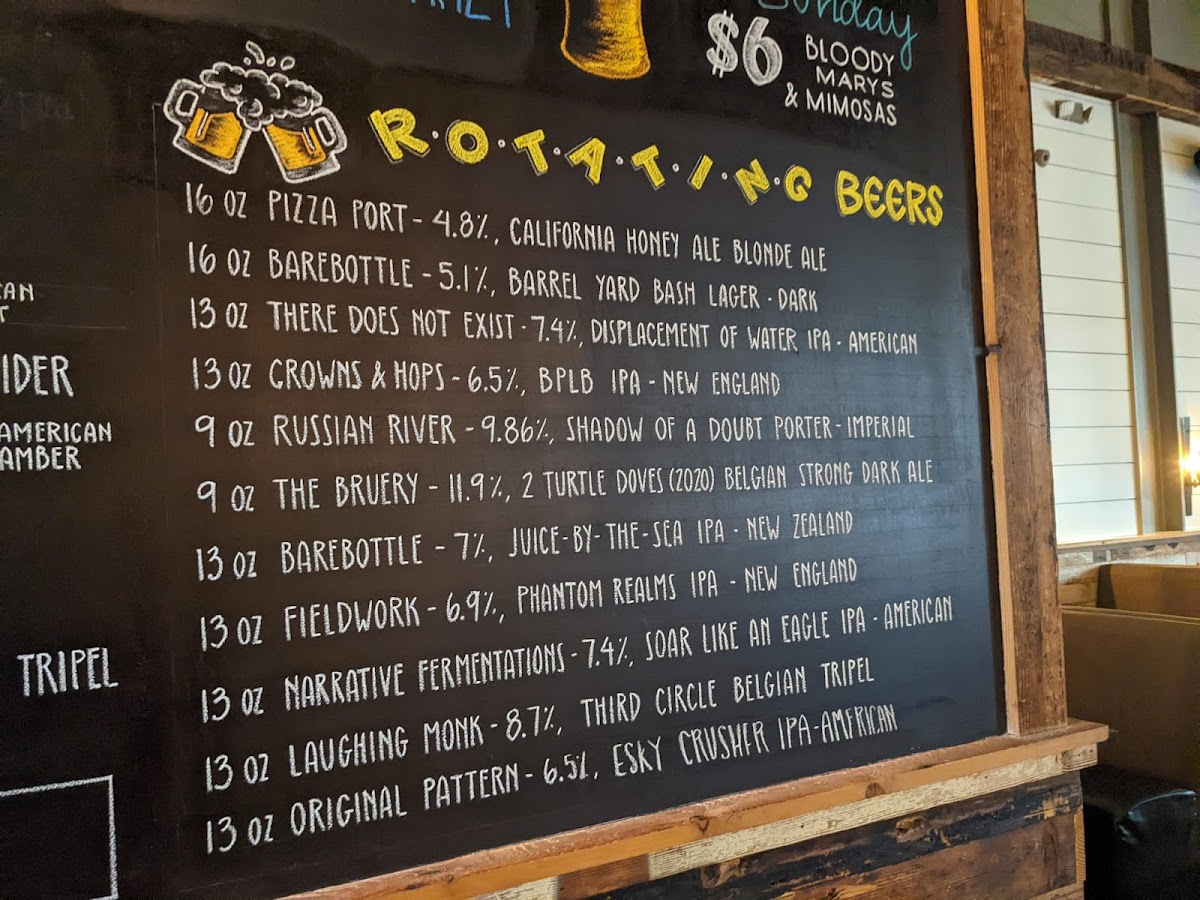 Sunday
$6 BLOODY
MARYS
& MIMOSAS
R·O·T·A·T·I·N·G BEERS
16 OZ PIZZA PORT - 4.8%, CALIFORNIA HONEY ALE BLONDE ALE
16 OZ BAREBOTTLE - 5.1%, BARREL YARD BASH LAGER - DARK
13 OZ THERE DOES NOT EXIST - 7.4%, DISPLACEMENT OF WATER IPA - AMERICAN
13 OZ CROWNS & HOPS - 6.5%, BPLB IPA - NEW ENGLAND
9 OZ RUSSIAN RIVER - 9.86%, SHADOW OF A DOUBT PORTER - IMPERIAL
9 OZ THE BRUERY - 11.9%, 2 TURTLE DOVES (2020) BELGIAN STRONG DARK ALE
13 OZ BAREBOTTLE - 7%, JUICE-BY-THE-SEA IPA - NEW ZEALAND
13 OZ FIELDWORK - 6.9%, PHANTOM REALMS IPA - NEW ENGLAND
13 OZ NARRATIVE FERMENTATIONS - 7.4%, SOAR LIKE AN EAGLE IPA - AMERICAN
13 OZ LAUGHING MONK - 8.7%, THIRD CIRCLE BELGIAN TRIPEL
13 OZ ORIGINAL PATTERN - 6.5%, ESKY CRUSHER IPA-AMERICAN
AMERICAN
AMBER
TRIPEL